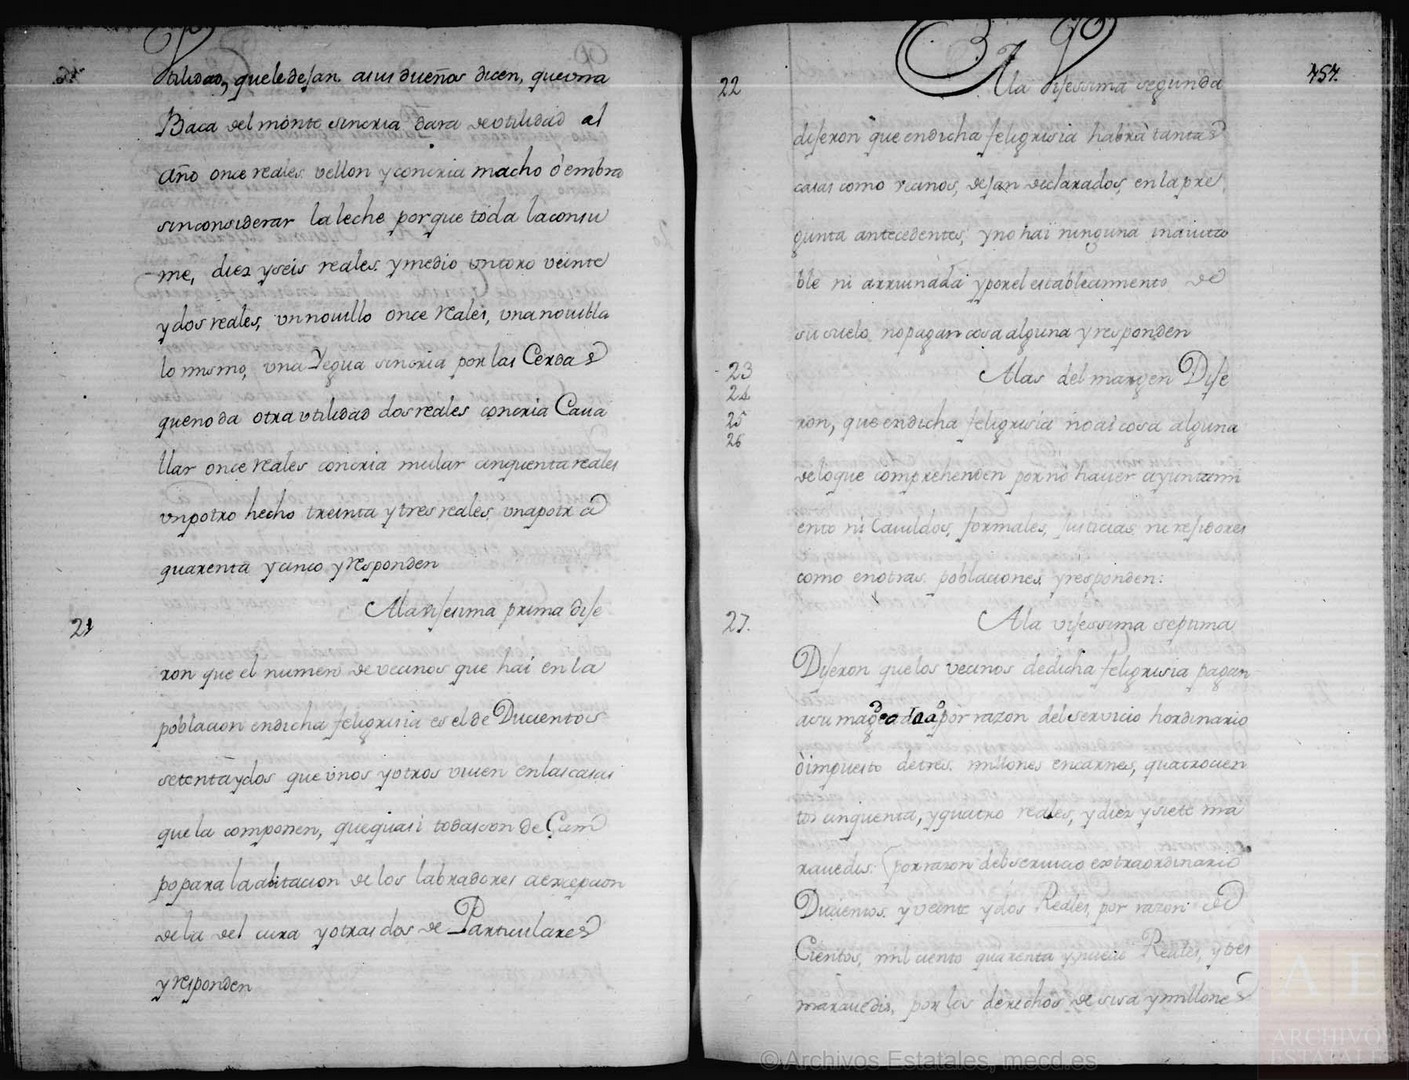 utilidad, que le dejan a sus dueños dicen, que una
Baca del monte sin cria dara de utilidad al
año once reales vellon y con cria macho ò embra
sin considerar la leche porque toda la consu
me, diez y seis reales y medio un toro veinte
y dos reales, un novillo once reales, una novilla
lo mismo, una Yegua sin cria por las Cerdas
que no da otra utilidad dos reales con cria Cava
llar once reales con cria mular cinquenta reales
un potro hecho treinta y tres reales, una potra
quarenta y cinco y responden
21
A la visesima prima dije
ron que el numero de vecinos que hai en la
poblacion en dicha feligrisia es el de Ducientos
setenta y dos que unos y otros viven en las casas
que la componen, que quasi todas son de Cam
po para la abitacion de los labradores a excepcion
de la del cura y otras dos de Particulares
y responden
757.
22
A la visessima segunda
dijeron que en dicha feligrisia habrà tantas
casas como vecinos, dejan declarados, en la pre
gunta antecedente, y no hai ninguna inavita
ble ni arruinada y por el establecimiento de
su suelo no pagan cosa alguna y responden
23
24
25
26
A las del margen Dije
ron, que en dicha feligrisia no ai cosa alguna
de lo que comprehenden por no haver ayuntami
ento ni Cavildos, formales, Justicias, ni rejidores
como en otras poblaciones y responden:
27.
A la visessima septima
Dijeron que los vecinos de dicha feligrisia pagan
a su magestad por razon del servicio hordinario
ò impuesto de tres millones en carnes, quatrocien
tos cinquenta, y quatro reales, y diez y siete ma
ravedis. por razon del servicio extraordinario
Ducientos y veinte y dos Reales, por razon de
Cientos, mil ciento quarenta y nueve Reales, y tres
maravedis, por los derechos de sisa y millones
©Archivos Estatales, mecd.es
AE
ARCHIVOS
ESTATALES